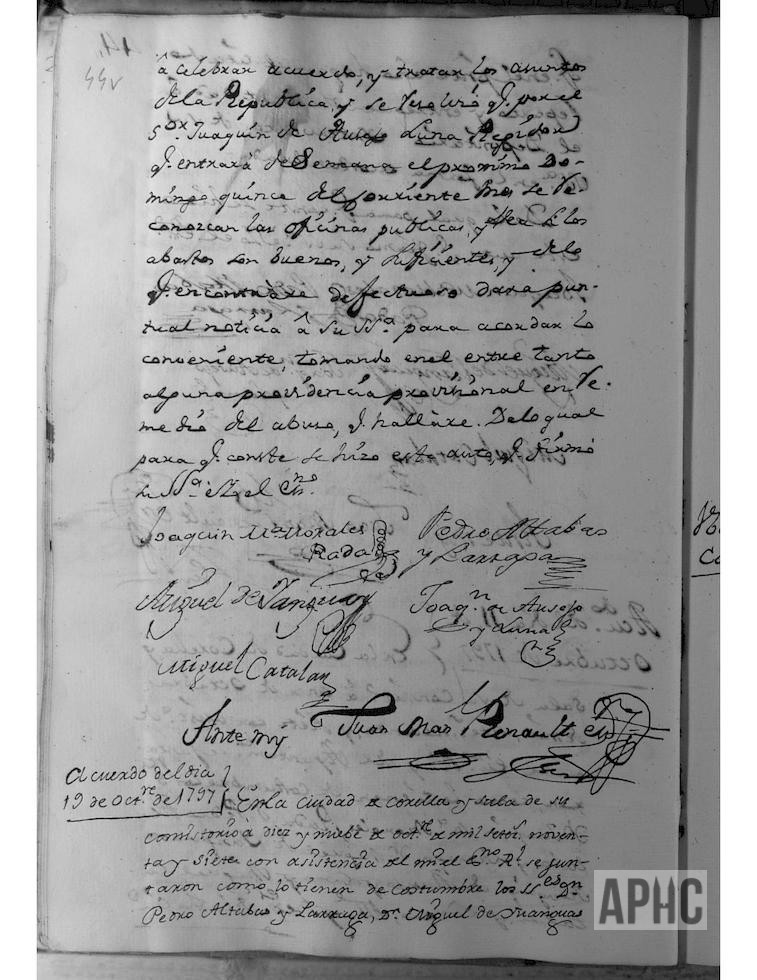 44v
â celebrar acuerdo, y tratar los asuntos
dela Republica, y se resolvió q.e por el
S.or Juaquin de Ausejo Luna Regidor
q.e entrará de Semana el proximo Do-
mingo quince del corriente Mes se re-
conozcan las oficinas publicas, y los
abastos son buenos, y suficientes, y delo
q.e encontráre defectuoso dará pun-
tual noticia â su SS.a para acordar lo
conveniente, tomando en el entre tanto
alguna providencia provisional en re-
medio del abuso, q.e halláre. Delo qual
para q.e conste se hizo este auto, q.e firmó
su SS.a è Yo el Es.no
Joaquin M.a Morales
Rada
Pedro Altabas
y Larraga
Miguel de Yanguas
Joaq.n de Ausejo
y Luna
Miguel Catalan
Ante my Juan Mar. Renault Es.no
Acuerdo del dia
19 de Oct.re de 1797
En la ciudad de Corella y sala de su
consistorio à diez y nuebe de oct.re de mil setec.s noven-
ta y siete con asistencia de mi el Es.no R.l se jun-
taron como lo tienen de costumbre los SS.es D.n
Pedro Altabas y Larraga, D.n Miguel de Yanguas
APHC